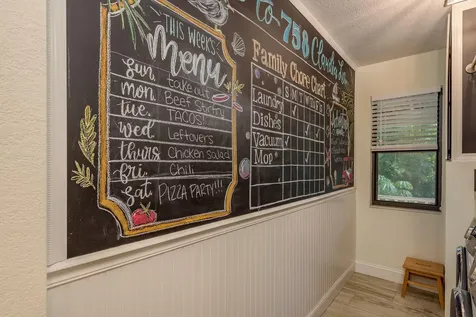 to 758 Clouds
THIS WEEKS
Menu
Sun take out
mon Beef Stirfry
tue. TACOS!
wed Leftovers
thurs Chicken Salad
fri. Chili
sat PIZZA PARTY!!!
Family Chore Chart
S M T W T F S
Laundry
Dishes
Vacuum
Mop